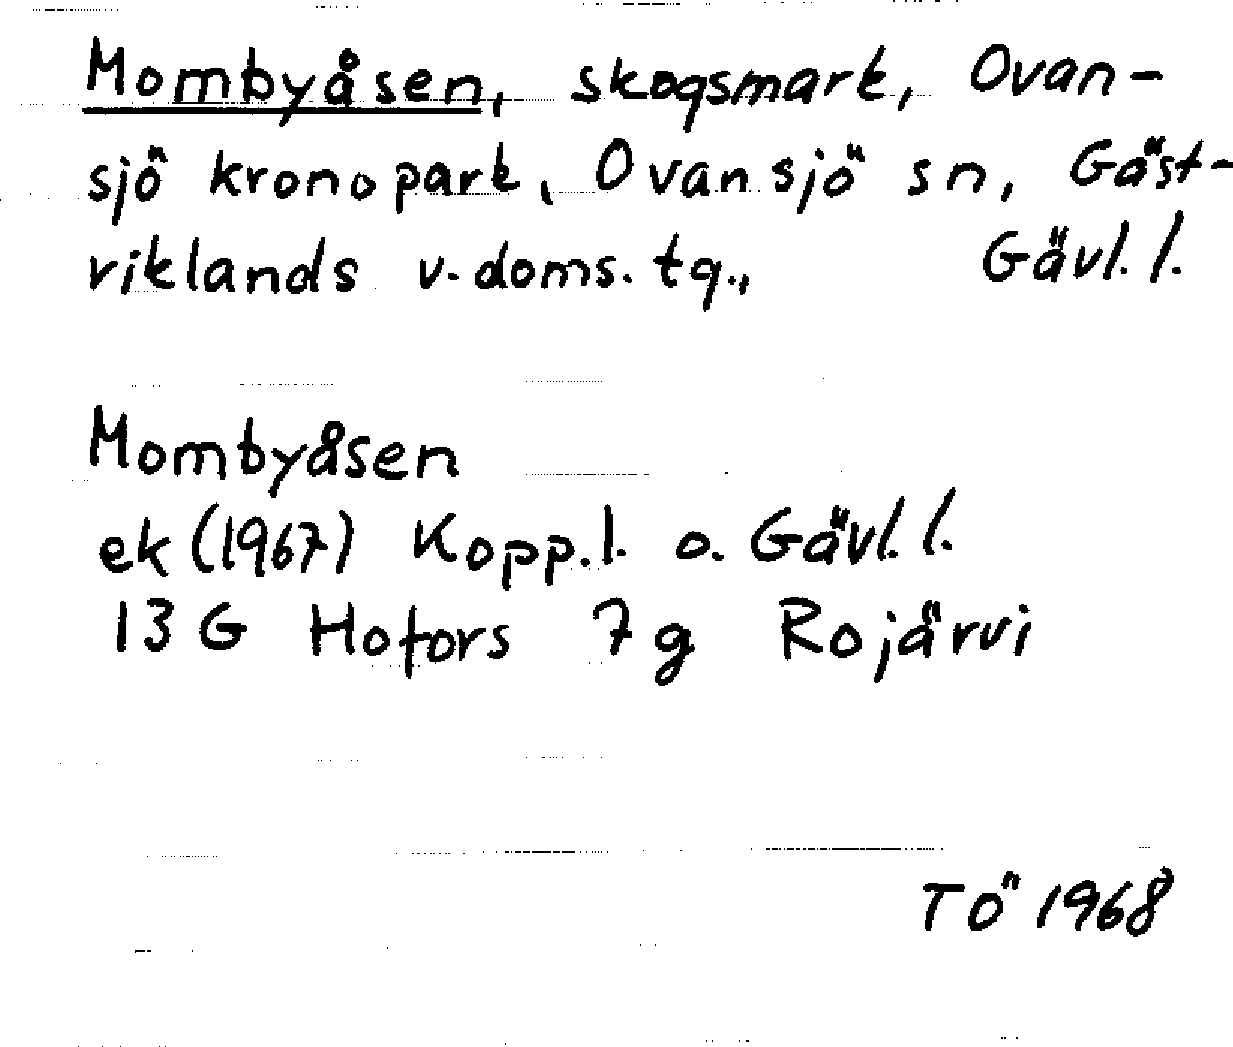 Mombyåsen, skogsmark, Ovan-
sjö kronopark, Ovansjö sn, Gäst-
riklands v. doms. tg., Gävl. l.
Mombyåsen
ek (1967) Kopp. l. o. Gävl. l.
13 G Hofors 7 g Rojärvi
TÖ 1968